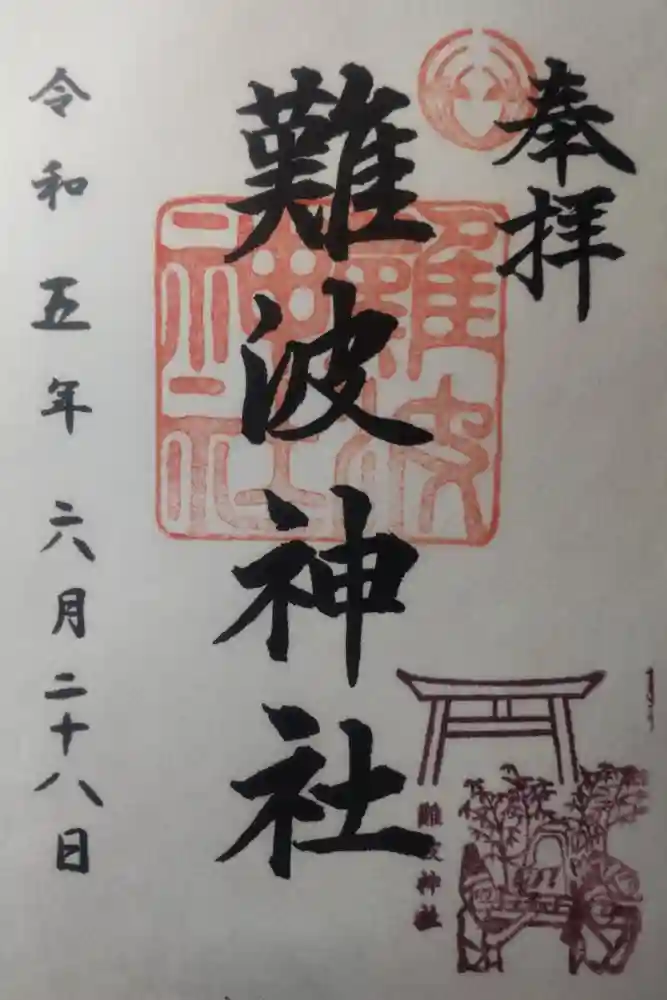 奉拝
難波神社
難波神社
難波神社
令和五年六月二十八日